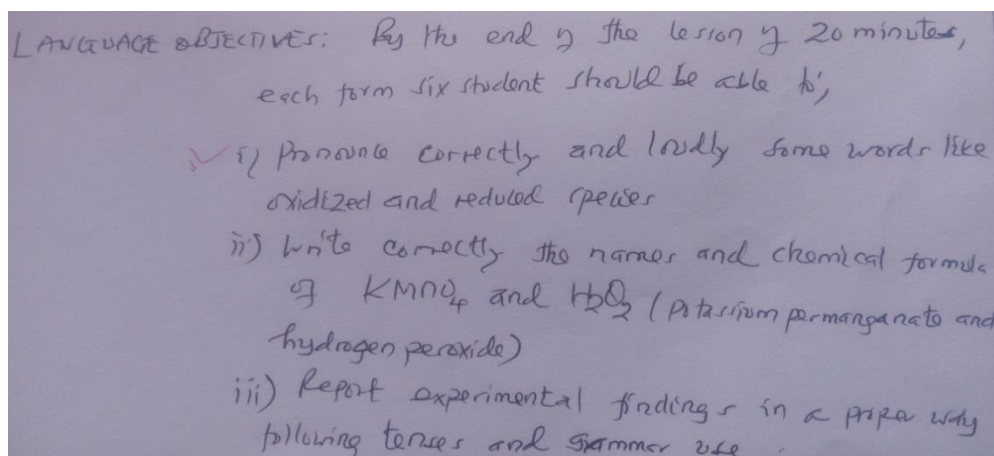 LANGUAGE OBJECTIVES: By the end of the lesson of 20 minutes,
each form six student should be able to;
i) Pronounce correctly and loudly some words like
oxidized and reduced species
ii) Write correctly the names and chemical formula
of KMnO4 and H2O2 (Potassium permanganate and
hydrogen peroxide)
iii) Report experimental findings in a proper way
following tenses and grammer use.